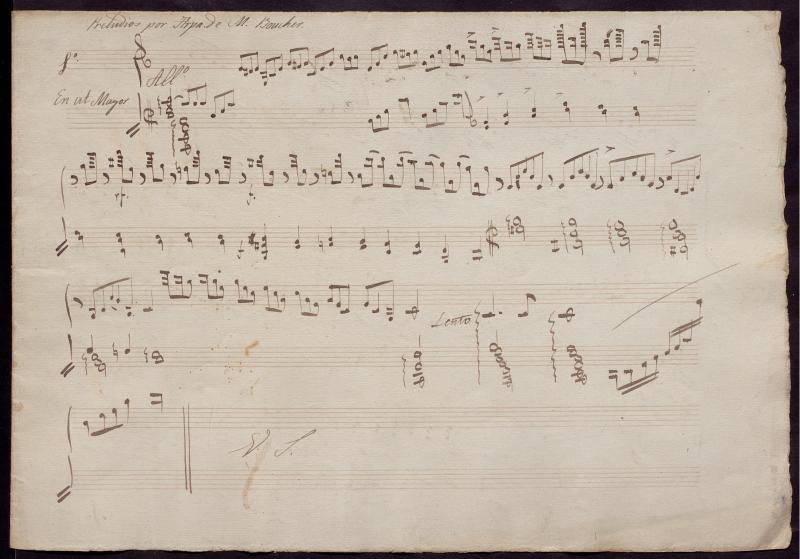 Preludios por Arpa de M. Boucher.
1º.
All.º
En ut Mayor
Lento
V. S.